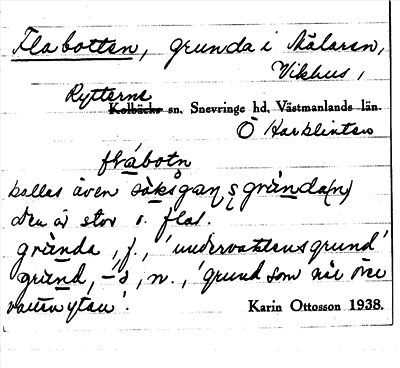 Flabotten, grunda i Mälaren,
Vikhus,
Rytterne
Kolbäcks sn. Snevringe hd. Västmanlands län.
Ö Harklinten
flåbotn
kallas även såksgan,s grùnda(n)
Den är stor o. flat.
grùnda, f., 'undervattensgrund'
grùnd, -s, n., 'grund som når över
vattenytan'.
Karin Ottosson 1938.